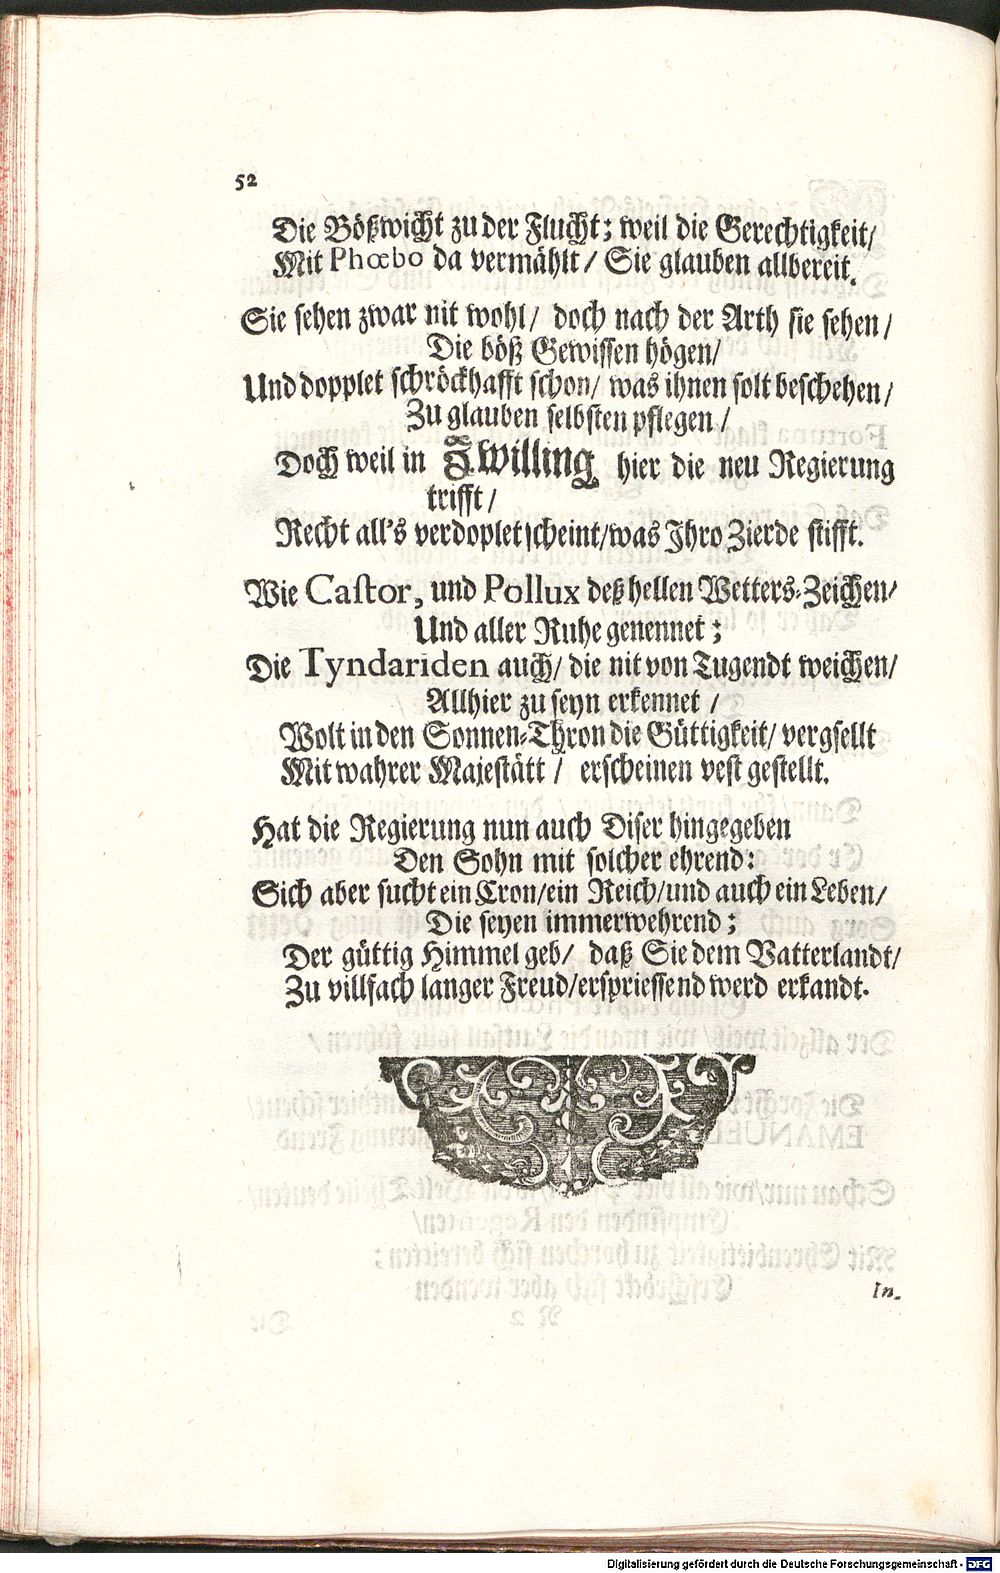 52
Die Bößwicht zu der Flucht; weil die Gerechtigkeit/
Mit Phœbo da vermählt / Sie glauben allbereit.
Sie sehen zwar nit wohl / doch nach der Arth sie sehen /
Die böß Gewissen högen /
Und dopplet schröckhafft schon / was ihnen solt beschehen /
Zu glauben selbsten pflegen /
Doch weil in Zwilling hier die neu Regierung
trifft /
Recht all's verdoplet scheint/was Ihro Zierde stifft.
Wie Castor, und Pollux deß hellen Wetters-Zeichen/
Und aller Ruhe genennet;
Die Tyndariden auch/ die nit von Tugendt weichen/
Allhier zu seyn erkennet /
Wolt in den Sonnen-Thron die Güttigkeit/ vergsellt
Mit wahrer Majestätt / erscheinen vest gestellt.
Hat die Regierung nun auch Diser hingegeben
Den Sohn mit solcher ehrend:
Sich aber sucht ein Cron/ein Reich/und auch ein Leben/
Die seyen immerwehrend;
Der güttig Himmel geb/ daß Sie dem Vatterlandt/
Zu villfach langer Freud/erspriessend werd erkandt.
In-
Digitalisierung gefördert durch die Deutsche Forschungsgemeinschaft - DFG